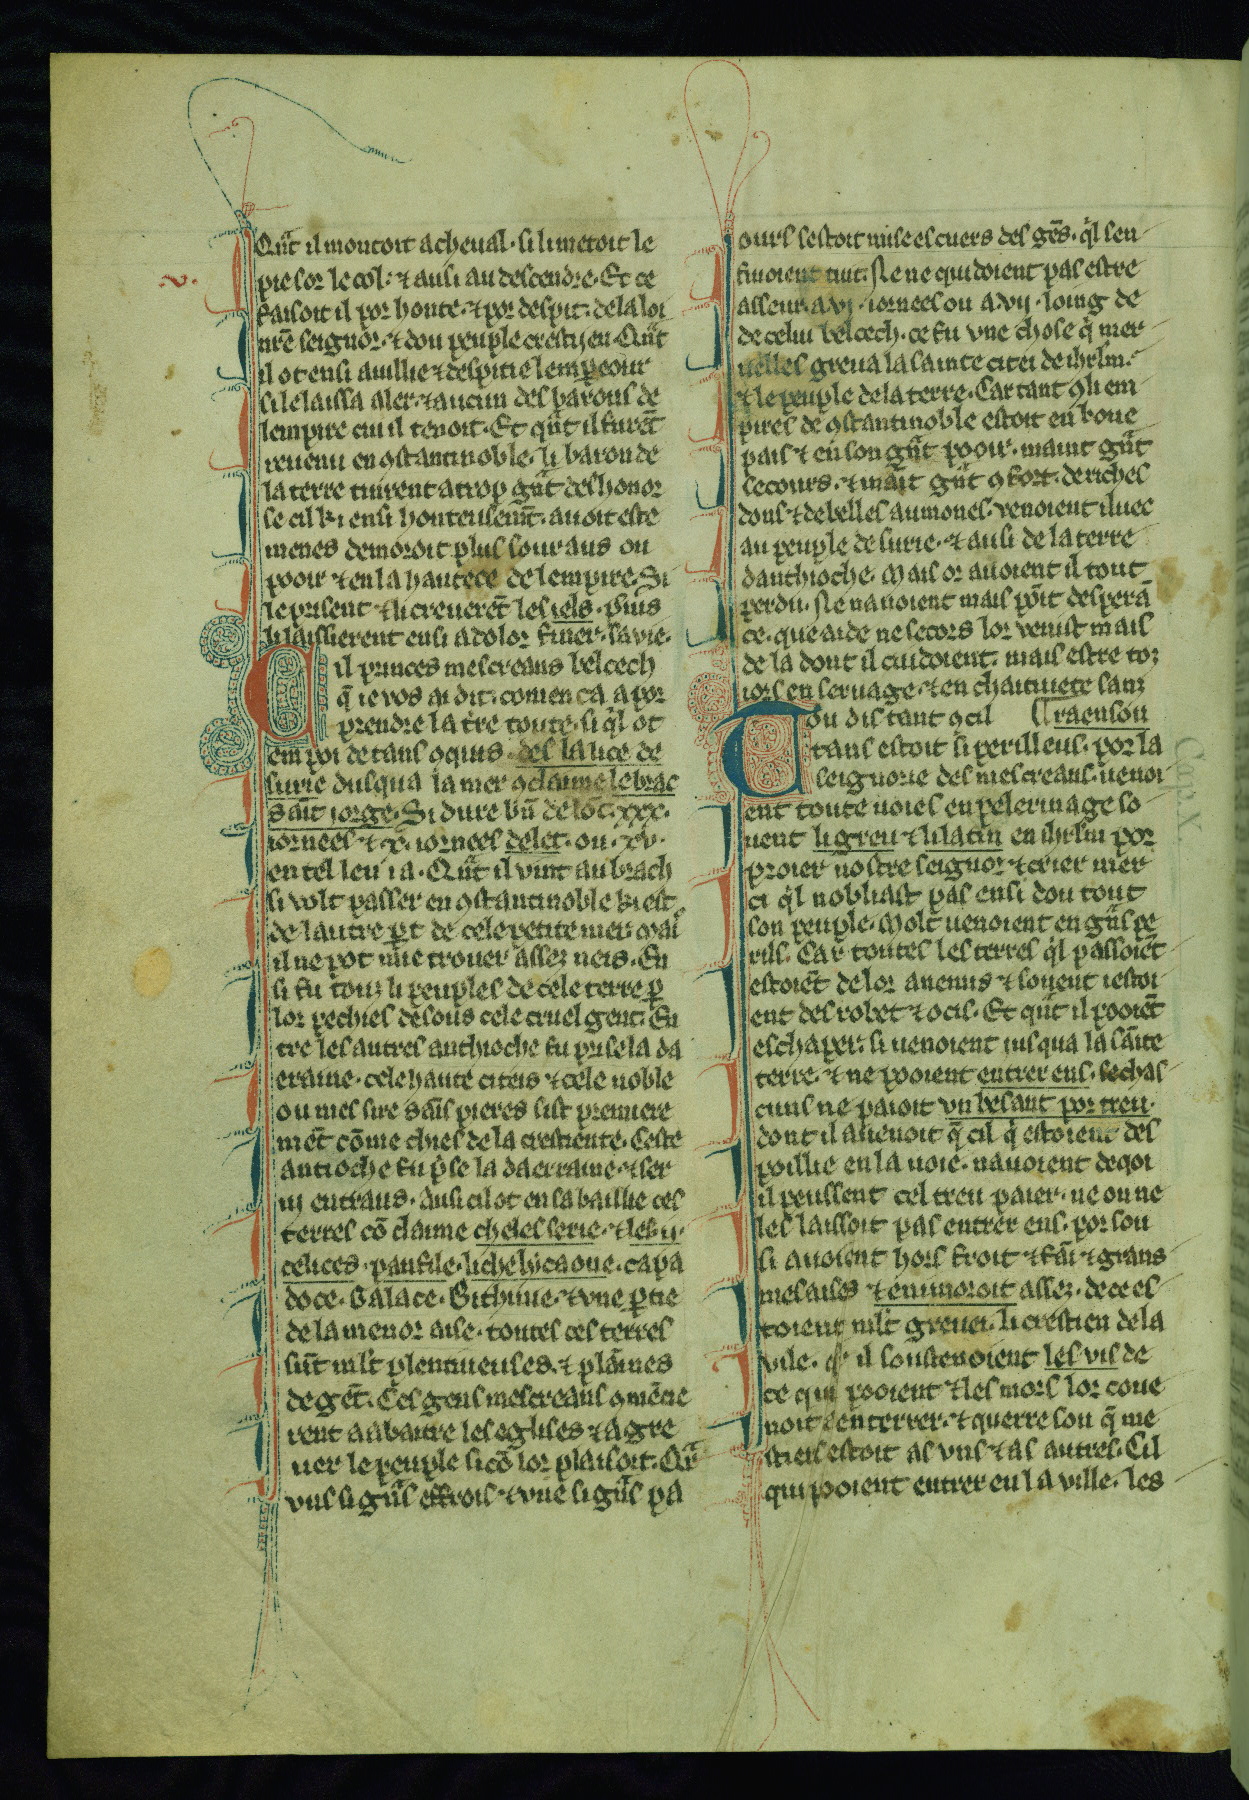 Qūt il montoit a cheual · si li metoit le
.v.
pie sor le col · ⁊ ausi au descendre · Et ce
faisoit il por honte · ⁊ por despit · de la loi
nr̄e seignor · ⁊ dou peuple crestijen · Qūt
il ot ensi auillie ⁊ despitie lempeour
si le laissa aler · ⁊ aucun des barons de
lempire cui il tenoit · Et qūt il furēt
reuenu en ꝯstantinoble · li baron de
la terre tinrent a trop gūt deshonor
se cil ki ensi honteusemt̄ · auoit este
menes demoroit plus souraus ou
pooir ⁊ en la hautece de lempire · Si
le prisent ⁊ li creuerēt les iels · puis
li laissierent ensi a dolor finer · sa vie ·
Cil princes mescreans belcech
q̄ ie vos ai dit · comenca a por
prendre la tr̄e toute · si ql ot
em poi de tans ꝯquis · des la lice de
surie dusqua la mer ꝯclaime le brac
saīt iorge · Si dure bn̄ de lōc · xxx ·
iornees ⁊ · x · iornees de let · ou · xv ·
en tel leu i a · Qūt il vint au brach
si volt passer en ꝯstantinoble ki est
de lautre pt de cele petite mer · mai
il ne pot mie trouer assez neis · En
si fu touz li peuples de cele terre p
lor pechies desous cele cruel gent · En
tre les autres anthioche fu prise la da
eraine · cele haute citeis ⁊ cele noble
ou mes sire saīs pieres sist premiere
mēt cōme chies de la crestiente · Ceste
antioche fu pse la daerraine · ⁊ ser
ui entrans · Ausi cil ot en sa baillie ces
terres cō claime chelesserie · ⁊ les ij ·
celices · panfile · liche lycaone · capa
doce · Galace · Bithinie · ⁊ vne ptie
de la menor aise · toutes ces terres
sūt mlt plentiueuses · ⁊ plāines
de gēt · Ces gens mescreans ꝯmēcie
rent a abatre les eglises ⁊ a gre
uer le peuple si cō lor plaisoit · Qr
vns si gūs effrois · ⁊ vne si gūs pa
ours sestoit mise es cuers des gēs · ql sen
fuioient tuit · Ne ne quidoient pas estre
asseur · a vj · iornees ou a vij · loing de
de celui belcech · ce fu vne chose q mer
uelles greua la sainte citei de ihrlm̄ ·
⁊ le peuple de la terre · Car tant ꝯ li em
pires de ꝯstantinoble estoit en boue
pais ⁊ en son gūt pooir · maint gūt
secours · ⁊ māit gūt ꝯfort · de riches
dons ⁊ de belles aumones · venoient iluec
au peuple de surie · ⁊ ausi de la terre
danthioche · Mais or auoient il tout
perdu · Ne nauoient mais pōit despera
ce · que aide ne secors lor venist mais
de la dont il cuidoient · mais estre toz
iors en seruage · ⁊ en chaitiuete sanz
Tou dis tant ꝯ cil ¶ raenson
tans estoit si perilleus · por la
seignorie des mescreans · uenoi
ent toute uoies en pelerinage so
uent li greu ⁊ li latin en ihrlm por
proier nostre seignor ⁊ crier mer
ci ql nobliast pas ensi dou tout
son peuple · Molt uenoient en gūs pe
rils · Car toutes les terres ql passoiēt
estoiēt de lor anemis ⁊ souent iestoi
ent des robet ⁊ ocis · Et qūt il pooiēt
eschaper · si uenoient iusqua la sāīte
terre · ⁊ ne pooient entrer ens · se chas
cuns ne paioit vn besant por treu ·
dont il auenoit q̄ cil q estoient des
poillie en la uoie · nauoient de qoi
il peussent cel treu paier · ne on ne
les laissoit pas entrer ens · por son
si auoient hors froit ⁊ fāī ⁊ grans
mesaises ⁊ en i moroit assez · de ce es
toient mlt greuei · li crestien de la
vile · il soustenoient les vis de
ce qui pooient ⁊ les mors lor coue
noit denterrer · ⁊ querre son q̄ me
stiers estoit as vns ⁊ as autres · Cil
qui pooient entrer en la ville · les